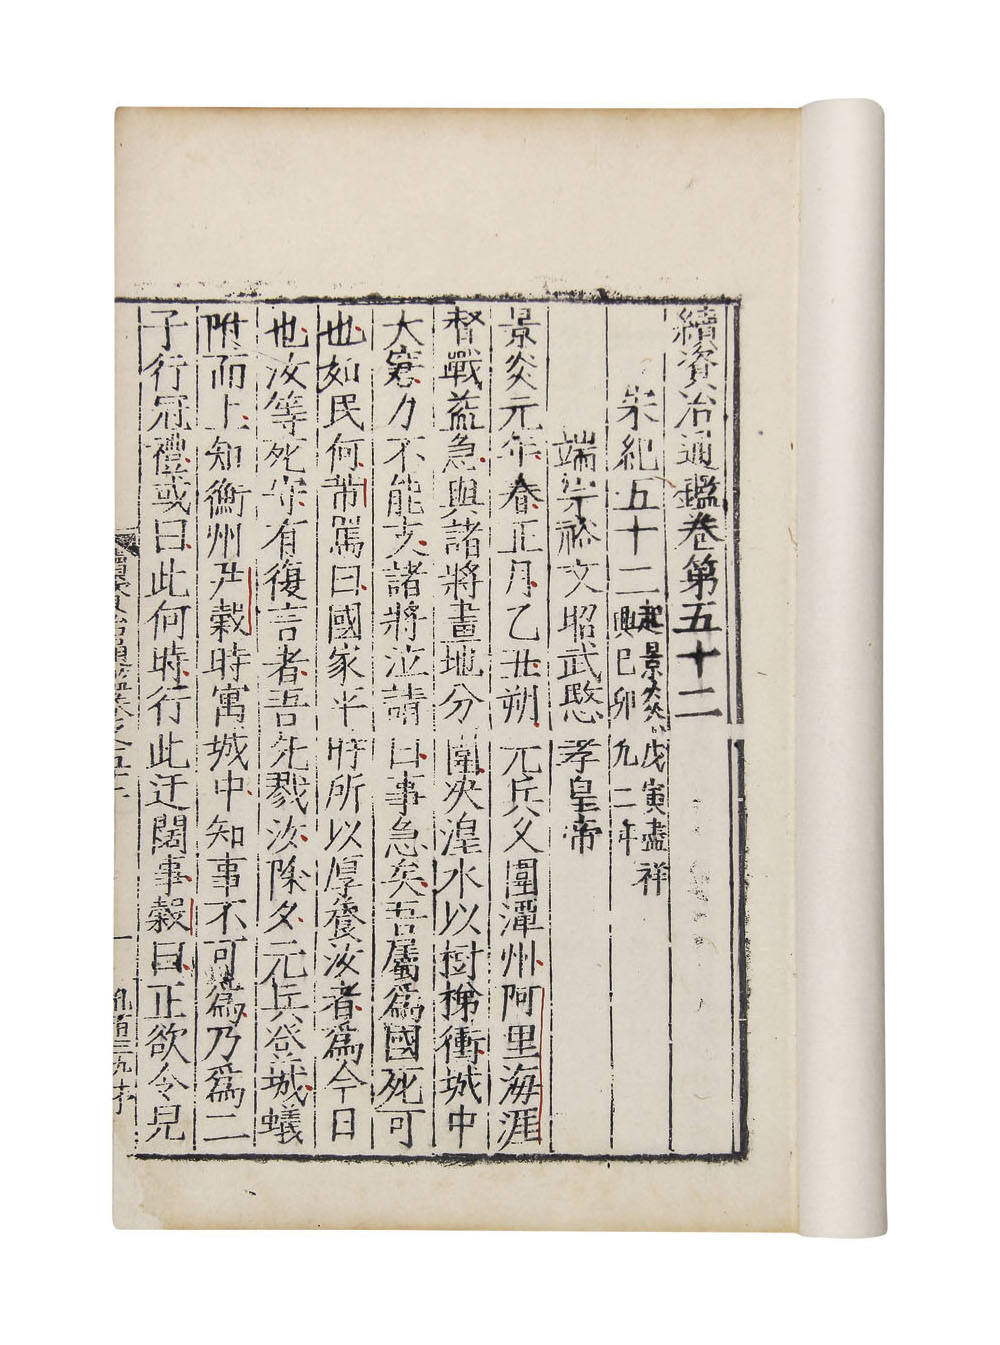 續資治通鑑卷第五十二
宋紀五十二 起景炎戊寅盡祥
興己卯九二年
端宗裕文昭武愍孝皇帝
景炎元年春正月乙丑朔元兵又圍潭州阿里海涯
督戰益急與諸將畫地分圍决湟水以樹梯衝城中
大窘力不能支諸將泣請曰事急矣吾屬爲國死可
也如民何芾罵曰國家平時所以厚養汝者爲今日
也汝等死守有復言者吾先戮汝除夕元兵登城蟻
附而上知衡州尹穀時寓城中知事不可爲乃爲二
子行冠禮或曰此何時行此迂闊事穀曰正欲令兒